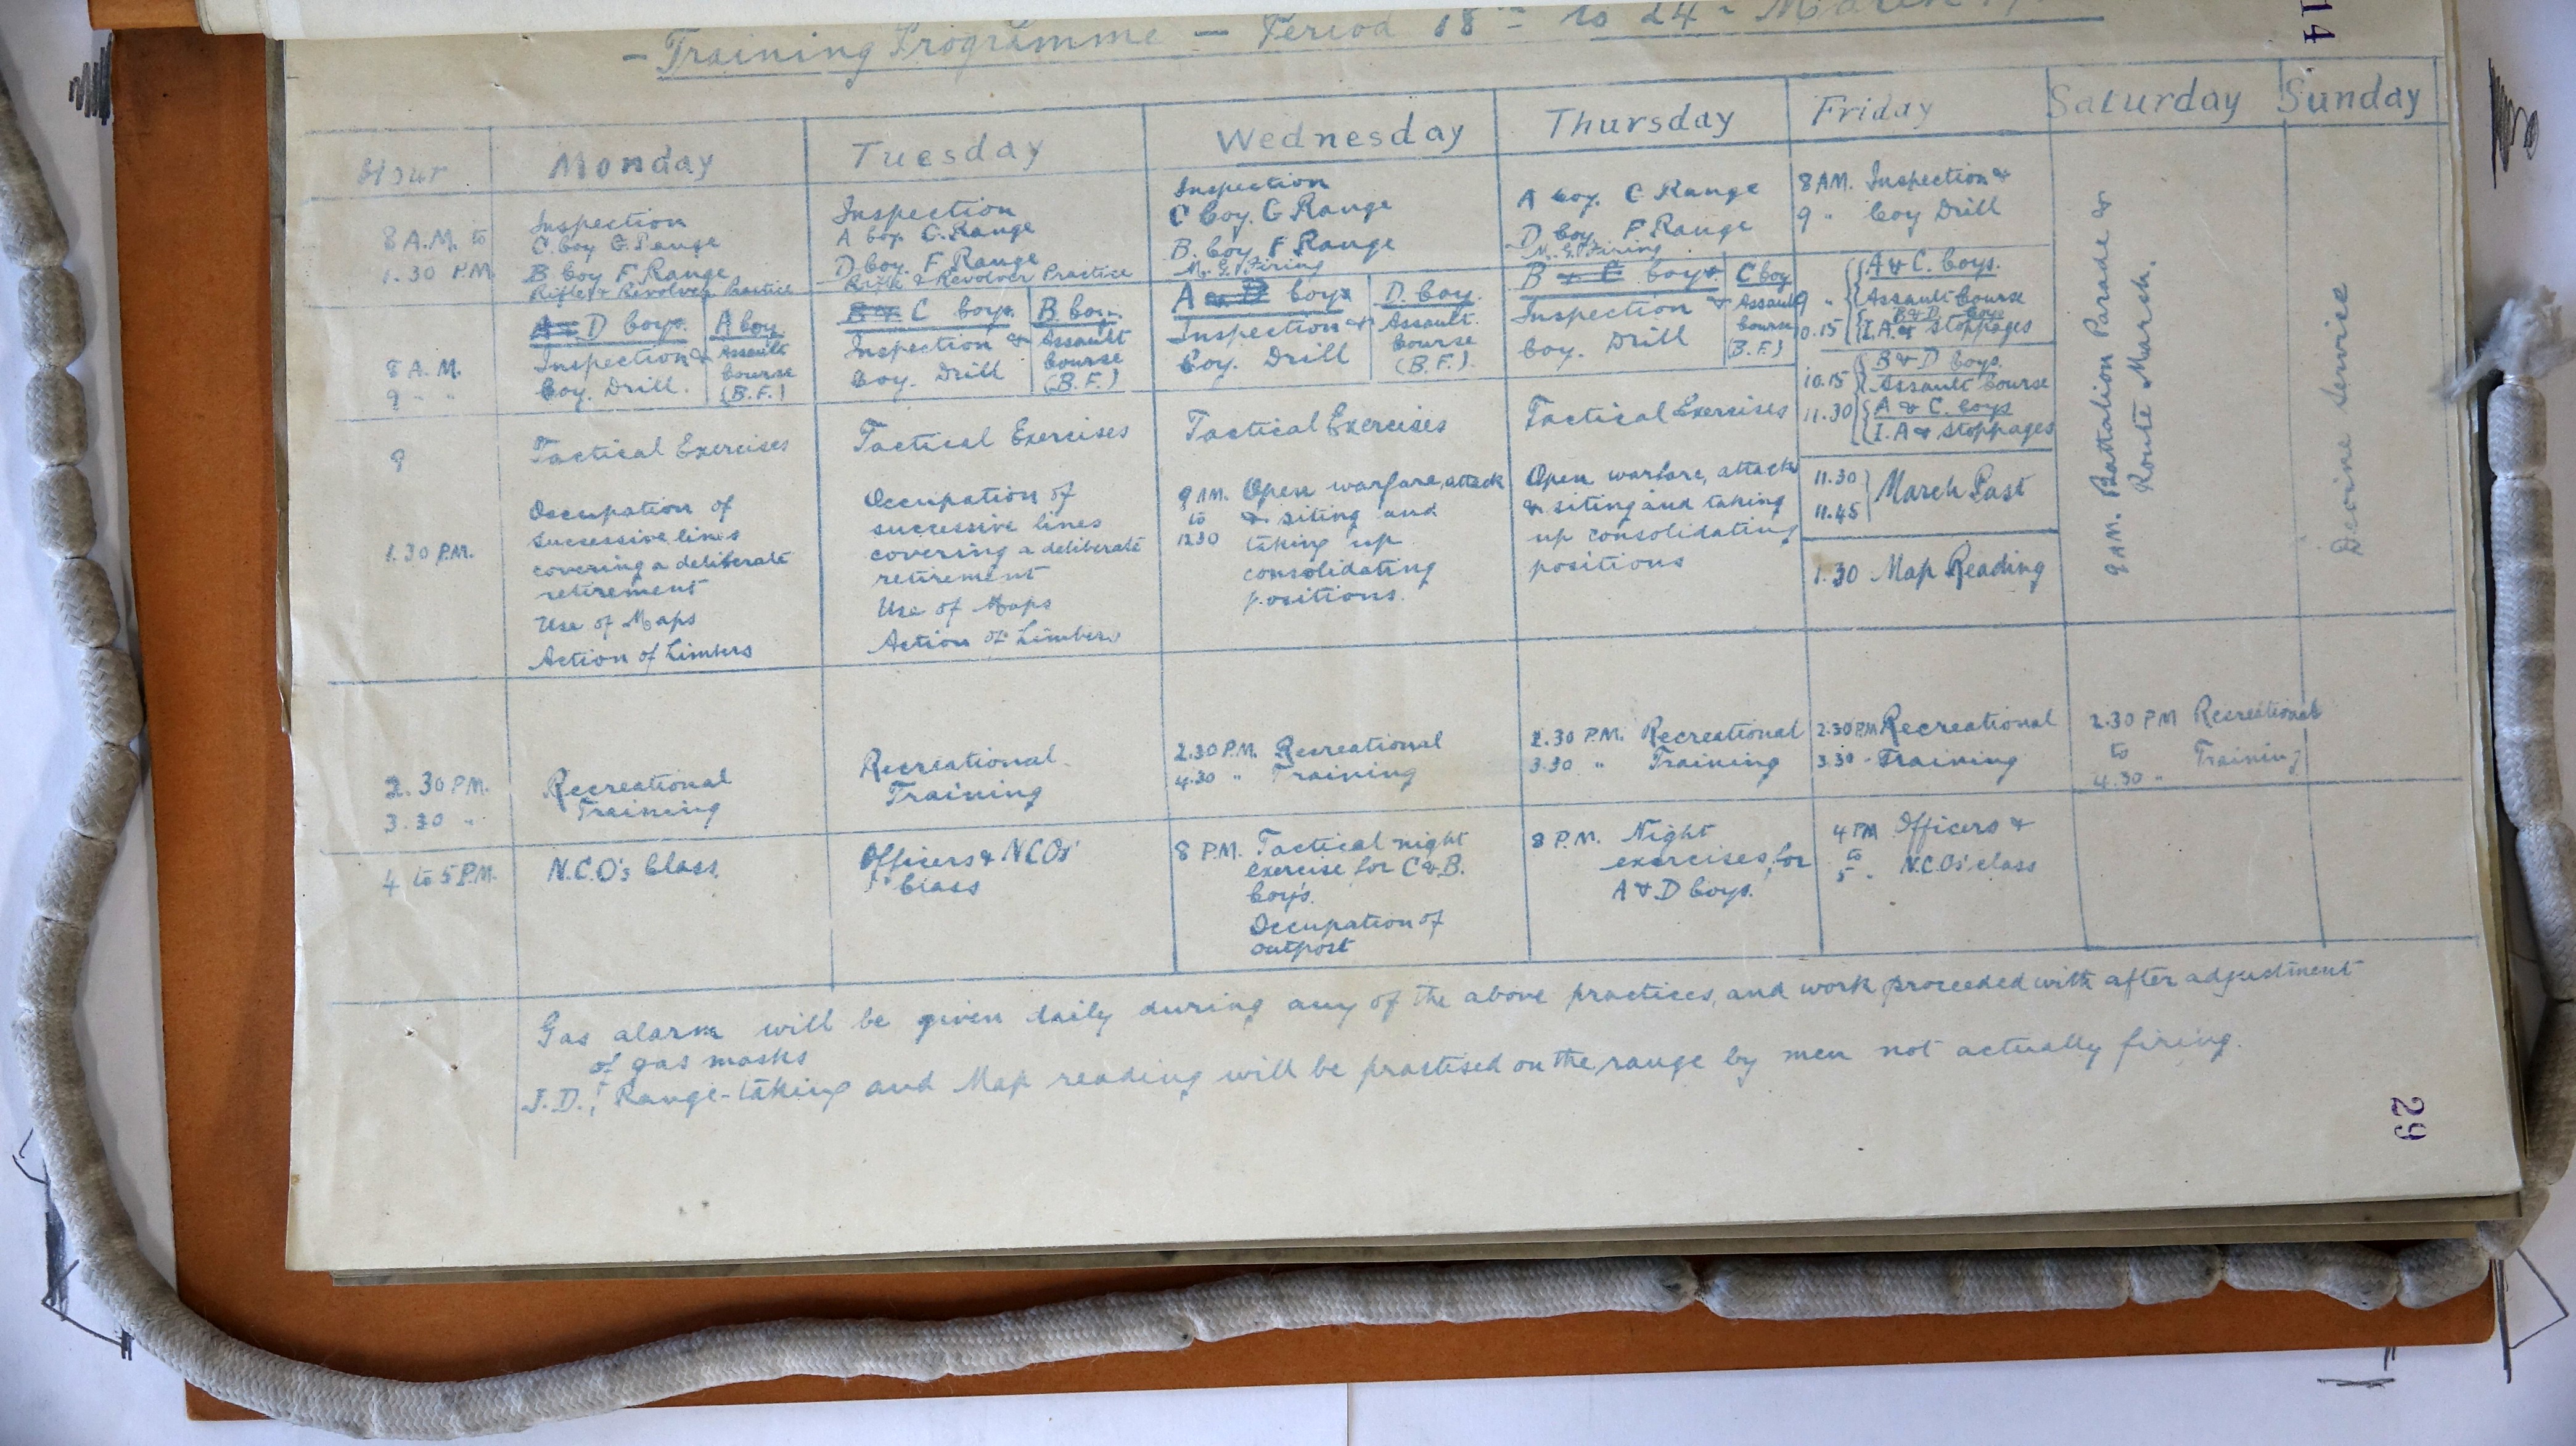 - Training Programme - Period 18th to 24th March
14
Hour
Monday
Tuesday
Wednesday
Thursday
Friday
Saturday
Sunday
8 A.M. to
1.30 P.M.
Inspection
C Coy G Range
B Coy F Range
Rifle & Revolver Practice
Inspection
A Coy G. Range
D Coy. F Range
Rifle & Revolver Practice
Inspection
C Coy. G Range
B. Coy F Range
M.G. Firing
A Coy. G Range
D Coy. F Range
M.G. Firing
8 AM. Inspection &
9 " Coy Drill
8 A.M.
9 " "
A & D Coys.
Inspection &
Coy. Drill.
A Coy.
Assault
Course
(B.F.)
B & C Coys.
Inspection &
Coy. Drill
B Coy.
Assault
Course
(B.F.)
A & D Coys
Inspection &
Coy. Drill
D. Coy.
Assault
Course
(B.F.)
B & C Coys
Inspection &
Coy. Drill
C Coy
Assault
Course
(B.F.)
9 "
10.15
A & C. Coys.
Assault Course
B & D Coys
I.A. & Stoppages
10.15
11.30
B & D Coys.
Assault Course
A & C. Coys
I.A & Stoppages
11.30
11.45
March Past
1.30 Map Reading
9 AM. Battalion Parade &
Route March.
Devine Service
9
1.30 P.M.
Tactical Exercises
Occupation of
successive lines
covering a deliberate
retirement
Use of Maps
Action of Limbers
Tactical Exercises
Occupation of
successive lines
covering a deliberate
retirement
Use of Maps
Action of Limbers
Tactical Exercises
9 AM. Open warfare, attack
to & siting and
12.30 taking up
consolidating
positions.
Tactical Exercises
Open warfare, attack
& siting and taking
up consolidating
positions
2.30 P.M.
3.30 "
Recreational
Training
Recreational
Training
2.30 P.M. Recreational
4.30 " Training
2.30 P.M. Recreational
3.30 " Training
2.30 PM Recreational
3.30 " Training
2.30 PM Recreational
to Training
4.30 "
4 to 5 P.M.
N.C.O's Class
Officers & NCOs'
Class
8 P.M. Tactical night
exercise for C & B.
Coys.
Occupation of
outpost
8 P.M. Night
exercises for
A & D Coys.
4 PM Officers &
to N.C.Os' class
5 "
Gas alarm will be given daily during any of the above practices, and work proceeded with after adjustment
of gas masks
J.D., Range-taking and Map reading will be practised on the range by men not actually firing.
29